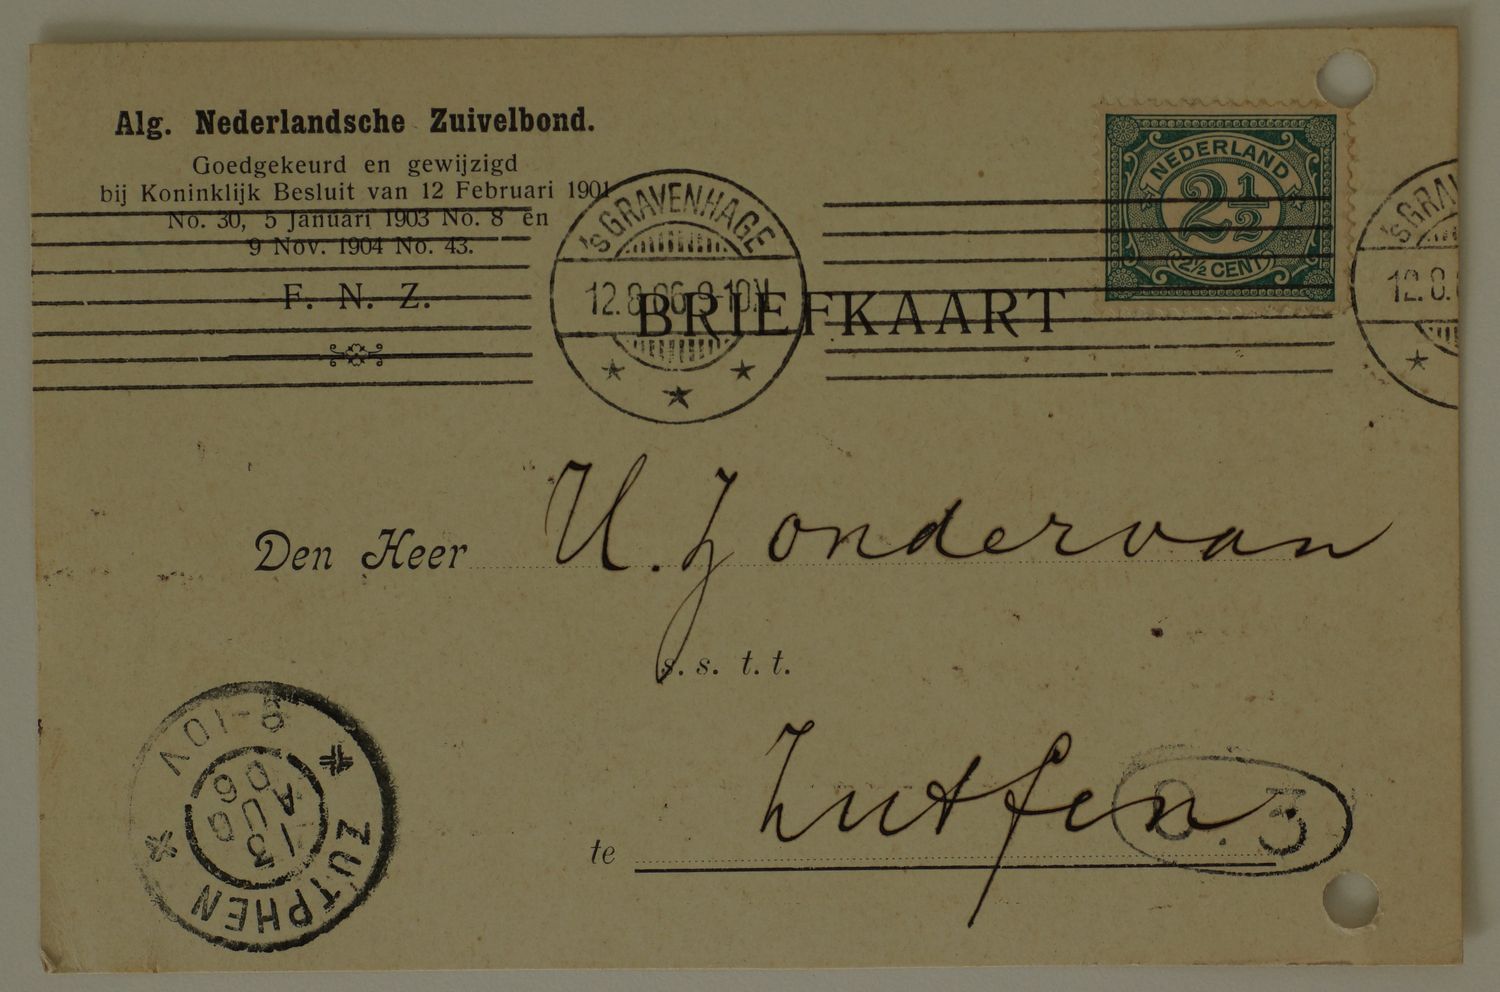 Alg. Nederlandsche Zuivelbond.
Goedgekeurd en gewijzigd
bij Koninklijk Besluit van 12 Februari 1901
No. 30, 5 Januari 1903 No. 8 en
9 Nov. 1904 No. 43.
F. N. Z.
'sGRAVENHAGE
12.8.06 9-10V
NEDERLAND
2½
2½ CENT
'sGRA
12.8.
BRIEFKAART
Den Heer U. Zondervan
s. s. t. t.
te Zutfen.
8-10V
13 AUG 06
ZUTPHEN